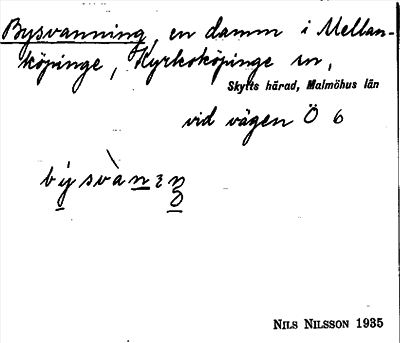 Bysvanning, en damm i Mellan-
köpinge, Kyrkoköpinge sn,
Skytts härad, Malmöhus län
vid vägen Ö 6
NILS NILSSON 1935